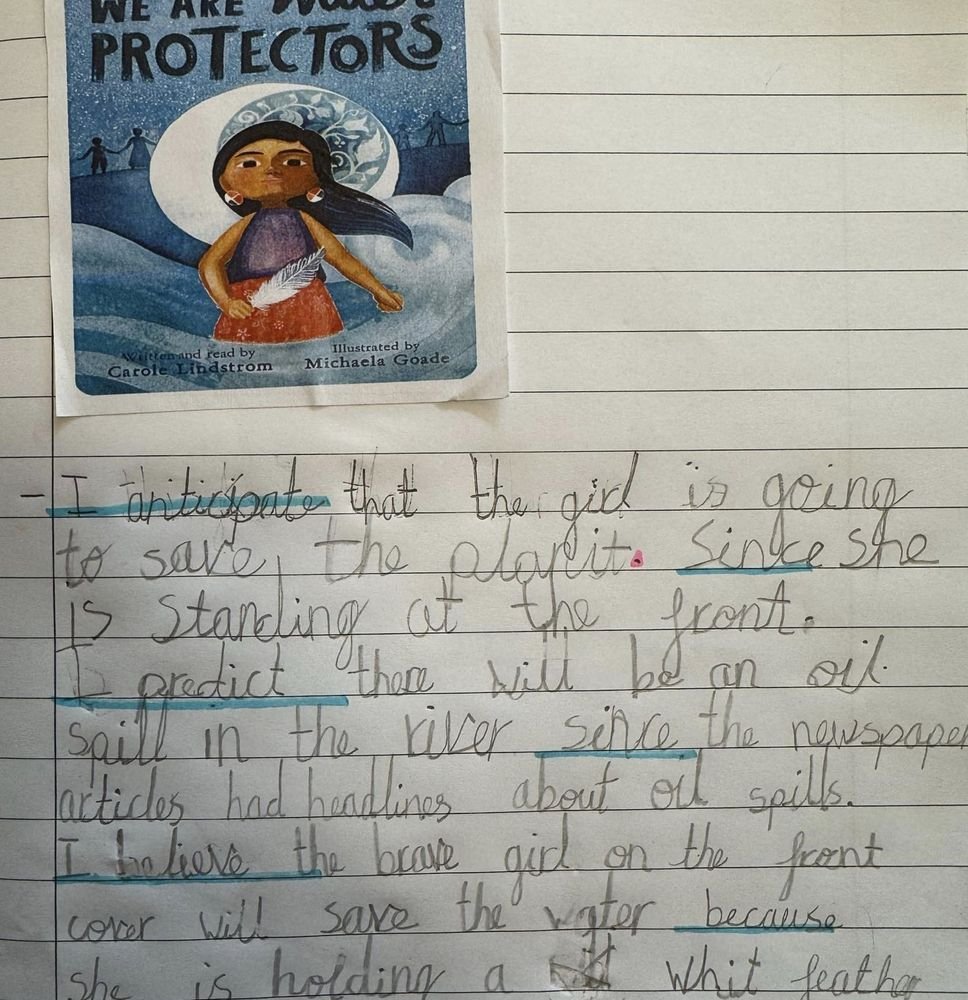 WE ARE Water
PROTECTORS
Written and read by
Carole Lindstrom
Illustrated by
Michaela Goade
- I anticipate that the girl is going
to save the planit. Since she
is standing at the front.
I predict there will be an oil
spill in the river since the newspaper
articles had headlines about oil spills.
I believe the brave girl on the front
cover will save the water because
she is holding a whit feather